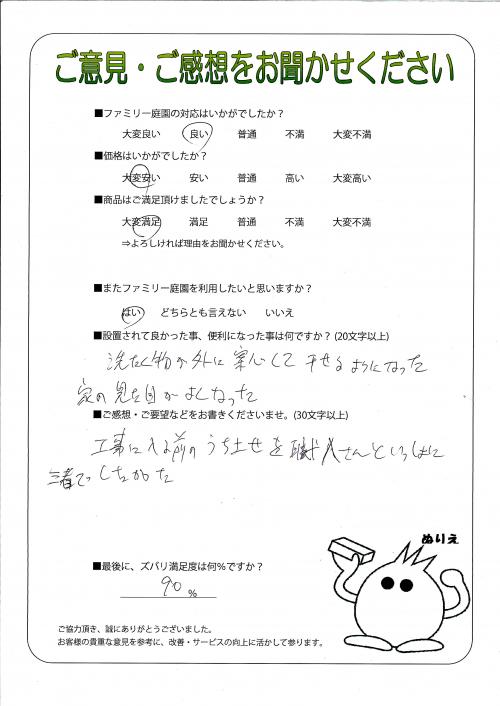 ご意見・ご感想をお聞かせください
■ファミリー庭園の対応はいかがでしたか？
大変良い 良い 普通 不満 大変不満
■価格はいかがでしたか？
大変安い 安い 普通 高い 大変高い
■商品はご満足頂けましたでしょうか？
大変満足 満足 普通 不満 大変不満
⇒よろしければ理由をお聞かせください。
■またファミリー庭園を利用したいと思いますか？
はい どちらとも言えない いいえ
■設置されて良かった事、便利になった事は何ですか？(20文字以上)
洗たく物が外に安心して干せるようになった
家の見た目がよくなった
■ご感想・ご要望などをお書きくださいませ。(30文字以上)
工事に入る前のうち合せを職人さんといっしょに
したかった
■最後に、ズバリ満足度は何％ですか？
90％
ぬりえ
ご協力頂き、誠にありがとうございました。
お客様の貴重な意見を参考に、改善・サービスの向上に活かして参ります。